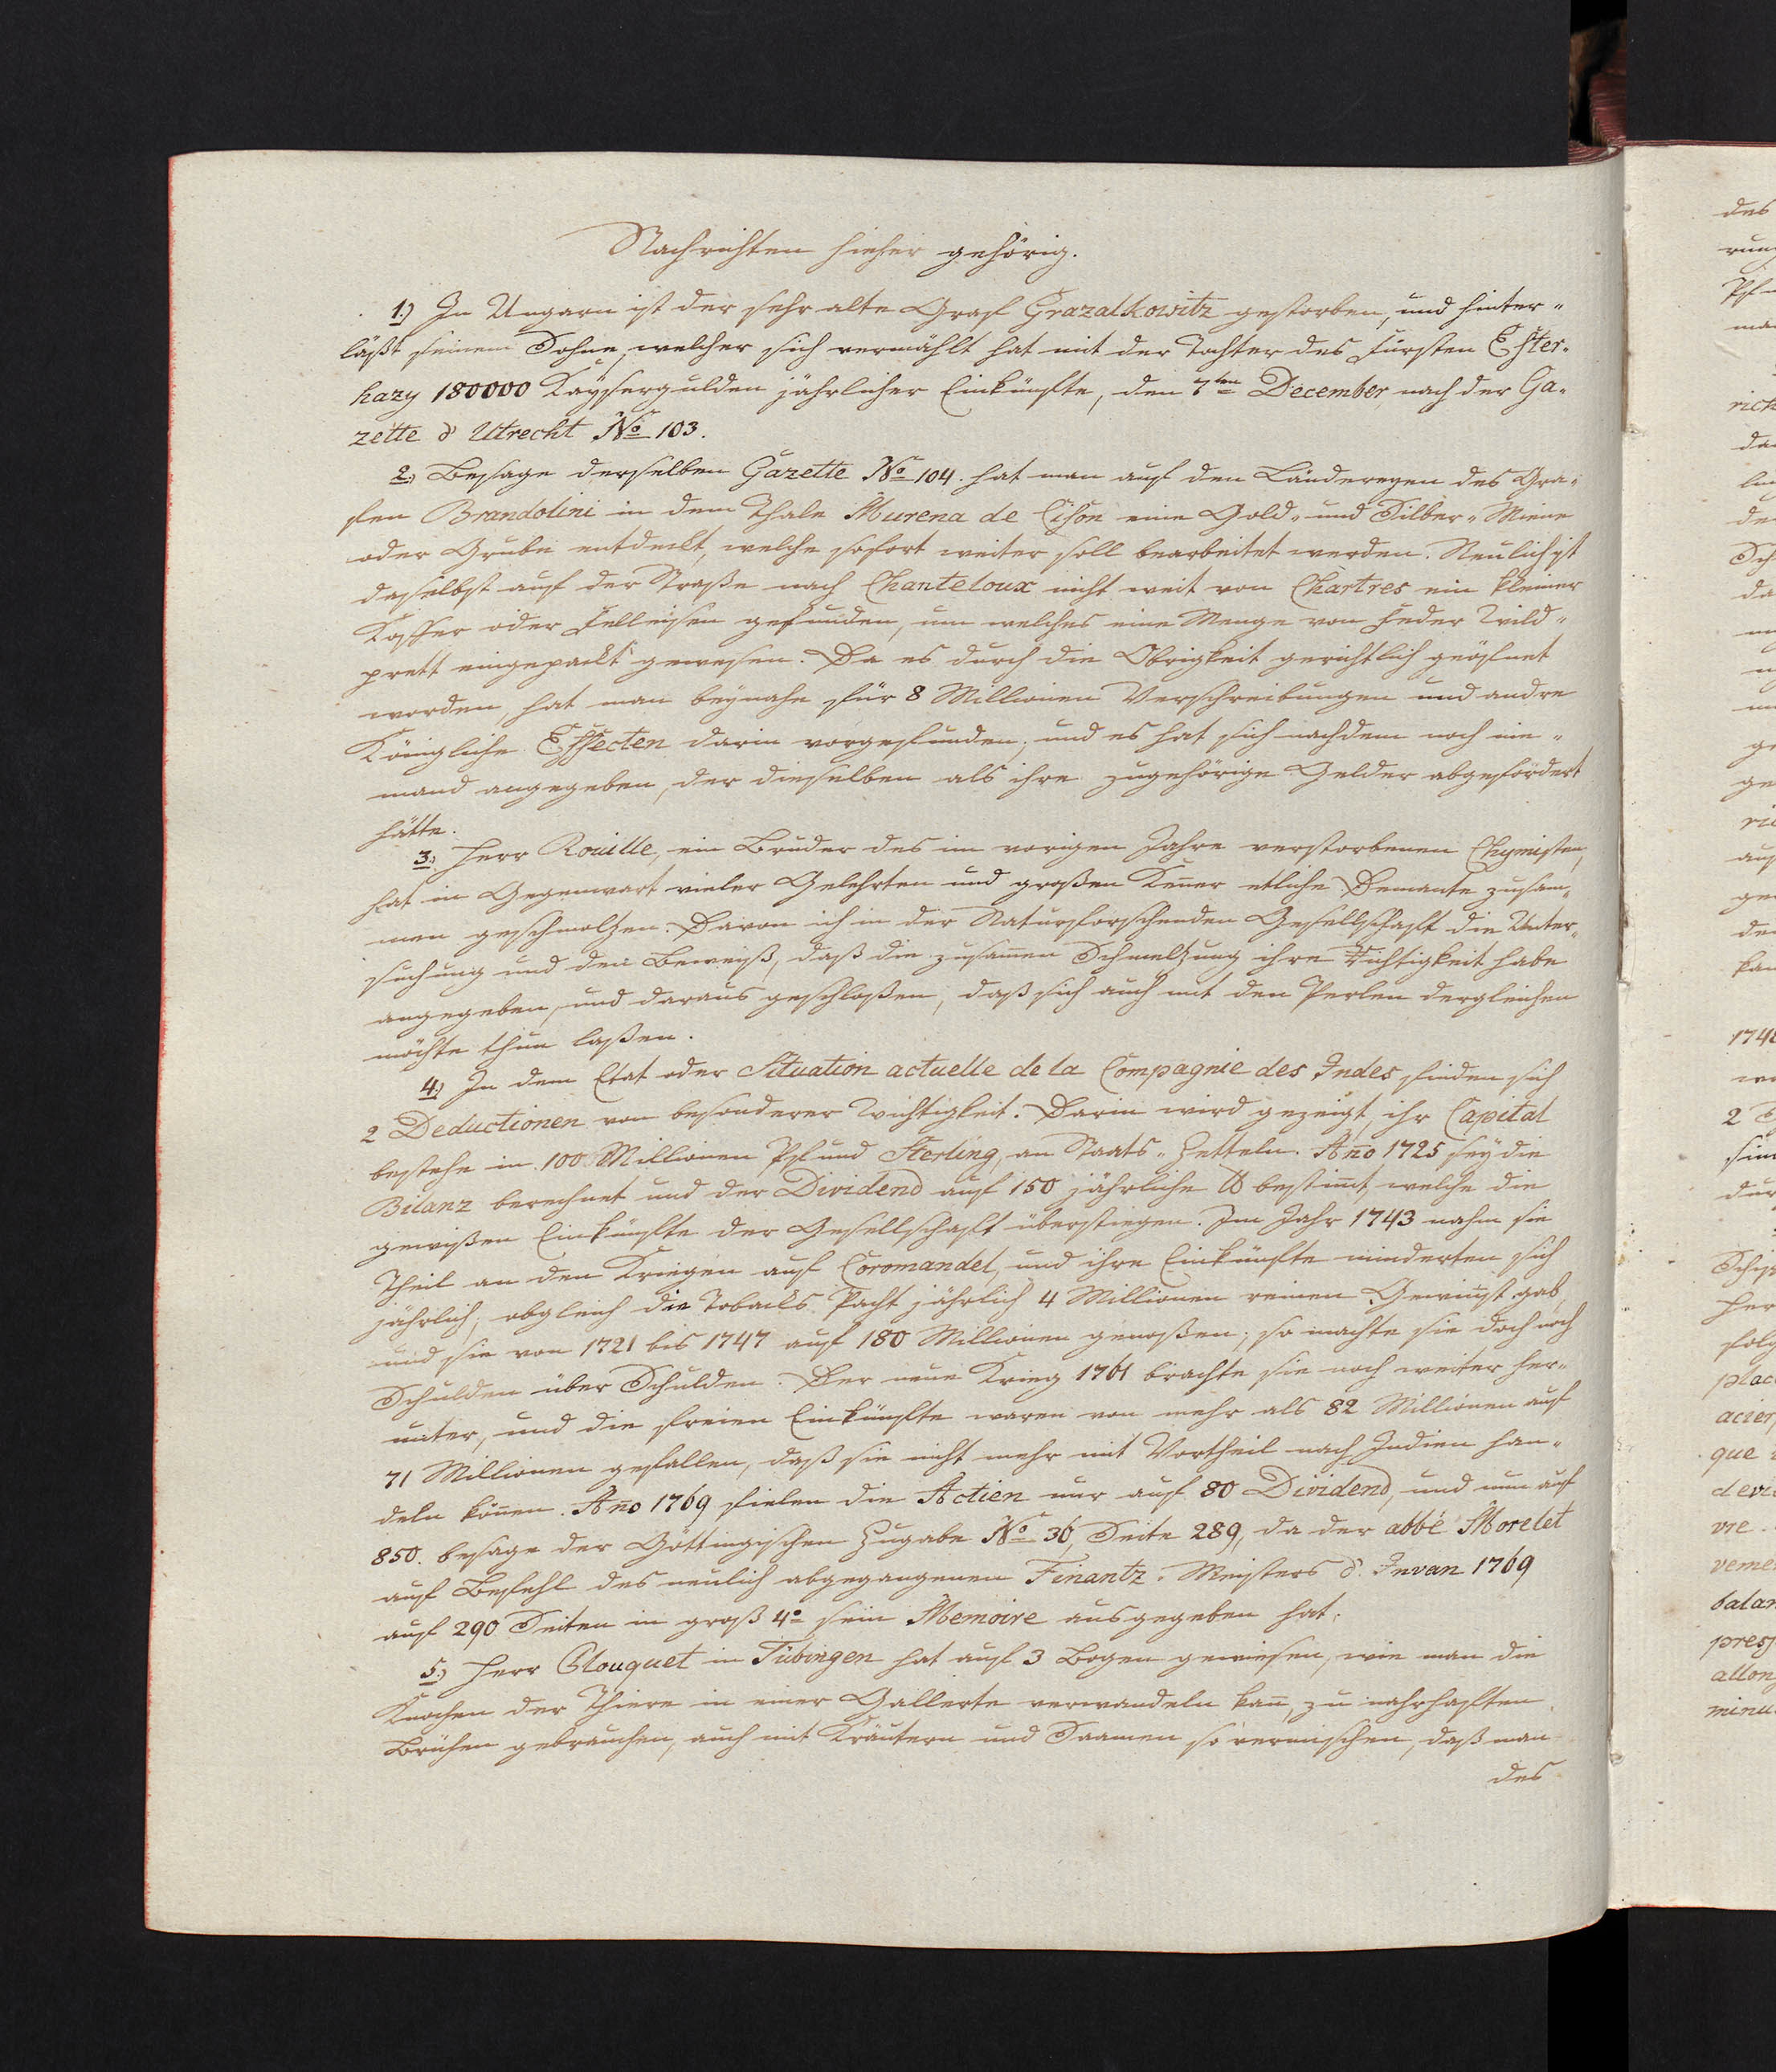 Nachrichten hieher gehörig.
1.) In Ungarn ist der sehr alte Graf Grazalkowitz gestorben, und hinter„
läßt seinem Sohne, welcher sich vermählt hat mit der Tochter des Fürsten Ester„
hazy 180000 Kaysergulden jährlicher Einkünfte, den 7ten December, nach der Ga„
zette d' Utrecht No 103.
2.) Besage derselben Gazette No 104. hat man auf den Ländereyen des Gra„
fen Brandolini in dem Thale Murena de Cison eine Gold„ und Silber„ Miene
oder Grube entdeckt, welche sofort weiter soll bearbeitet werden. Neulich ist
daselbst auf der Straße nach Chanteloux nicht weit von Chartres ein kleiner
Koffer oder Felleisen gefunden, um welches eine Menge von Feder Wild„
prett eingepackt gewesen. Da es durch die Obrigkeit gerichtlich geöfnet
worden, hat man beynahe für 8 Millionen Verschreibungen und andre
Königliche Effecten darin vorgefunden; und es hat sich nachdem noch nie„
mand angegeben, der dieselben als ihre zugehörige Gelder abgefordert
hätte.
3.) Herr Rouille, ein Bruder des im vorigen Jahre verstorbenen Chymisten,
hat in Gegenwart vieler Gelehrten und großen Kenner etliche Demante zusam„
men geschmolzen. Davon ich in der Naturforschenden Gesellschaft die Unter„
suchung und den Beweiß, daß die zusamen Schmeltzung ihre Richtigkeit habe
angegeben, und daraus geschloßen, daß sich auch mit den Perlen dergleichen
möchte thun laßen.
4.) In dem Etat oder Situation actuelle de la Compagnie des Indes finden sich
2 Deductionen von besonderer Wichtigkeit. Darin wird gezeigt, ihr Capital
bestehe in 100 Millionen Pfund Sterling, an Staats„ Zetteln. Año 1725 sey die
Bilanz berechnet und der Dividend auf 150 jährliche ℔ bestimt, welche die
gewißen Einkünfte der Gesellschaft überstiegen. Im Jahr 1743 nahm sie
Theil an den Kriegen auf Coromandel, und ihre Einkünfte minderten sich
jährlich, obgleich die Tobacks Pacht jährlich 4 Millionen reinen Gewinst gab,
und sie von 1721 bis 1747 auf 180 Millionen genoßen; so machte sie doch noch
Schulden über Schulden. Der neue Krieg 1761 brachte sie noch weiter her„
unter, und die freien Einkünfte waren von mehr als 82 Millionen auf
71 Millionen gefallen, daß sie nicht mehr mit Vortheil nach Indien han„
deln könen. Año 1769 fielen die Actien nur auf 80 Dividend, und nun auf
850. besage der Göttingischen Zugabe No 36, Seite 289, da der abbé Morelet
auf Befehl des neulich abgegangenen Finantz„ Meisters d' Invan 1769
auf 290 Seiten in groß 4o sein Memoire ausgegeben hat.
5.) Herr Clouquet in Tübingen hat auf 3 Bogen gewiesen, wie man die
Knochen der Thiere in einer Gallerte verwandeln kan, zu nahrhaften
Brühen gebrauchen, auch mit Kräutern und Saamen so vermischen, daß man
des